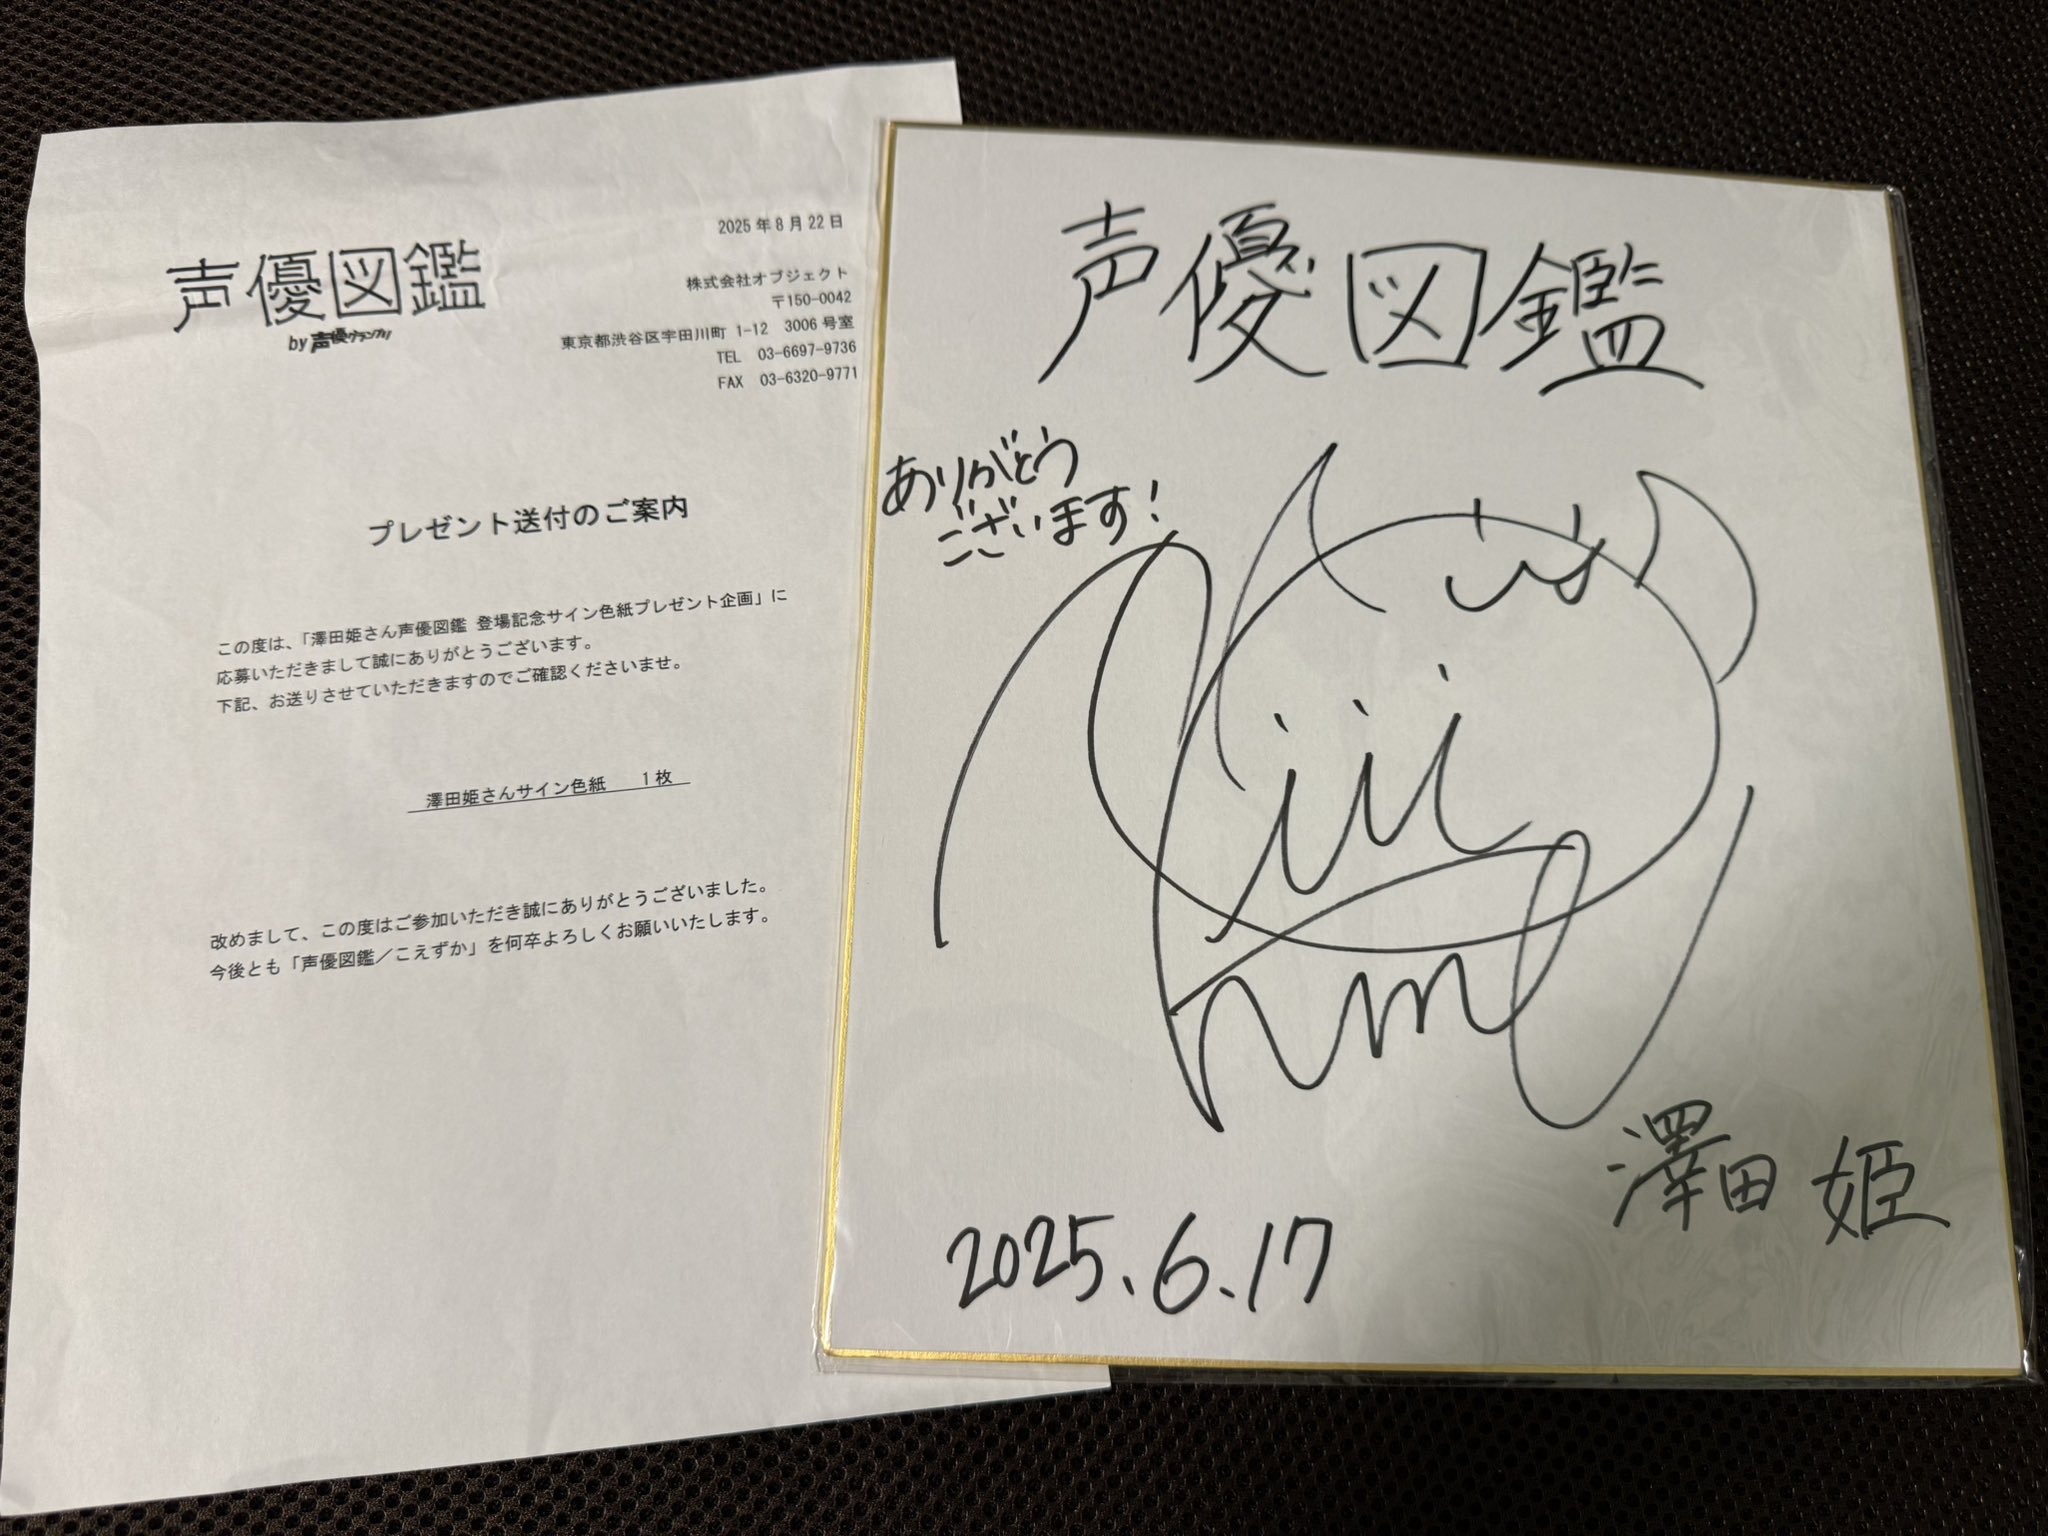 声優図鑑
by 声優グランプリ
2025年8月22日
株式会社オブジェクト
〒150-0042
東京都渋谷区宇田川町 1-12 3006号室
TEL 03-6697-9736
FAX 03-6320-9771
プレゼント送付のご案内
この度は、「澤田姫さん声優図鑑 登場記念サイン色紙プレゼント企画」に
応募いただきまして誠にありがとうございます。
下記、お送りさせていただきますのでご確認くださいませ。
澤田姫さんサイン色紙 1枚
改めまして、この度はご参加いただき誠にありがとうございました。
今後とも「声優図鑑／こえずか」を何卒よろしくお願いいたします。
声優図鑑
ありがとう
ございます!
澤田 姫
2025.6.17